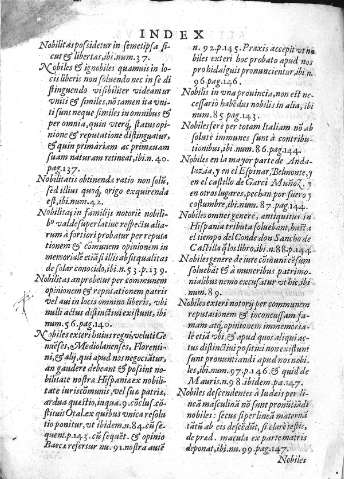 INDEX
Nobilitas possidetur in semetipsa si-
cut & libertas, ibi num. 37.
Nobiles & ignobiles quamuis in lo-
cis liberis non soluendo nec in se di
stinguendo visibiliter videantur
vnius & similes, nõ tamen ita vni-
ti sunt neque similes in omnibus &
per omnia, quin vterq; status opini
one & reputatione distinguatur,
& quin primæuam ac primæuam
suam naturam retineat, ibi n. 40.
pag. 137.
Nobilitatis obtinenda ratio non solũ,
sed illius quoq; origo exquirenda
est, ibi num. 42.
Nobilitas in familijs notorie nobili-
bus
à fortiori probatur per reputa
tionem & cõmunem opinionem in
memoriale etiã si illis absit qualitas
de solar conocido, ibi n. 53. p. 139.
Nobilitas an probetur per communem
opinionem & reputationem patris
vel aui in locis omnino liberis, vbi
nulli actus distinctiui existunt, ibi
num. 56. pag. 140.
Nobiles exteri huius regni, veluti Ge-
nueses, Mediolanenses, Florenti-
ni, & alij, qui apud nos negociãtur,
an gaudere debeant & possint no-
bilitate nostra Hispania ex nobili-
tate iuriscõmunis, vel sue patriæ,
ardua quæstio, in qua 9. cõclus. cõ-
stituit Otal. ex quibus vnica resolu
tio ponitur, vt ibidem n. 84. cũ se-
quent. p. 143. cũ sequẽt. & opinio
refersur nu. 91. nostra autẽ
n. 92. p. 145. Praxis accepit vt no
biles exteri hoc probato apud nos
pro hidalguis pronuncientur, ibi n.
96. pag. 146.
Nobilis in vna prouincia, non est ne-
cessario habẽdus nobilis in alia, ibi
num. 85. pag. 143.
Nobiles fere per totam Italiam nõ ab
soluti immunes sunt à contribu-
tionibus, ibi num. 86. pag. 144.
Nobiles en la mayor parte de Anda-
luzia, y en el Espinar, Belmonte, y
en el castillo de Garci Muñoz, y
en otros lugares, pechan por fuero y
costumbre, ibi num. 87. pag. 144.
Nobiles omnes generẽ, antiquitus in
Hispania tributa soluebant, hasta
el tiempo del Conde don Sancho de
Castilla so libro, ibi n. 88. p. 144.
Nobiles genere de iure cõmuni cẽsum
soluebãt & à muneribus patrimo-
nialibus nemo excusabatur, vt ibi
num. 89.
Nobiles exteri notorij per communem
reputationem & inconcussam fa-
mam atq; opinionem immemoria-
lẽ etiã vbi & apud quos aliqui ac-
tus distinctiui positiui non existunt
sunt pronuntiandi apud nos nobi-
les, ibi num. 97. p. 146. & quid de
Mauris n. 98. ibidem. pa. 147.
Nobiles descendentes à Iudeis per li-
neã masculinã nõ sunt pronũtiãdi
nobiles: secus si per lineã maternã
tãtũ ab eis descẽdãt, si clare testis,
de præd. macula ex parte matris
deponat, ibi nu. 99. pag. 147.
Nobiles